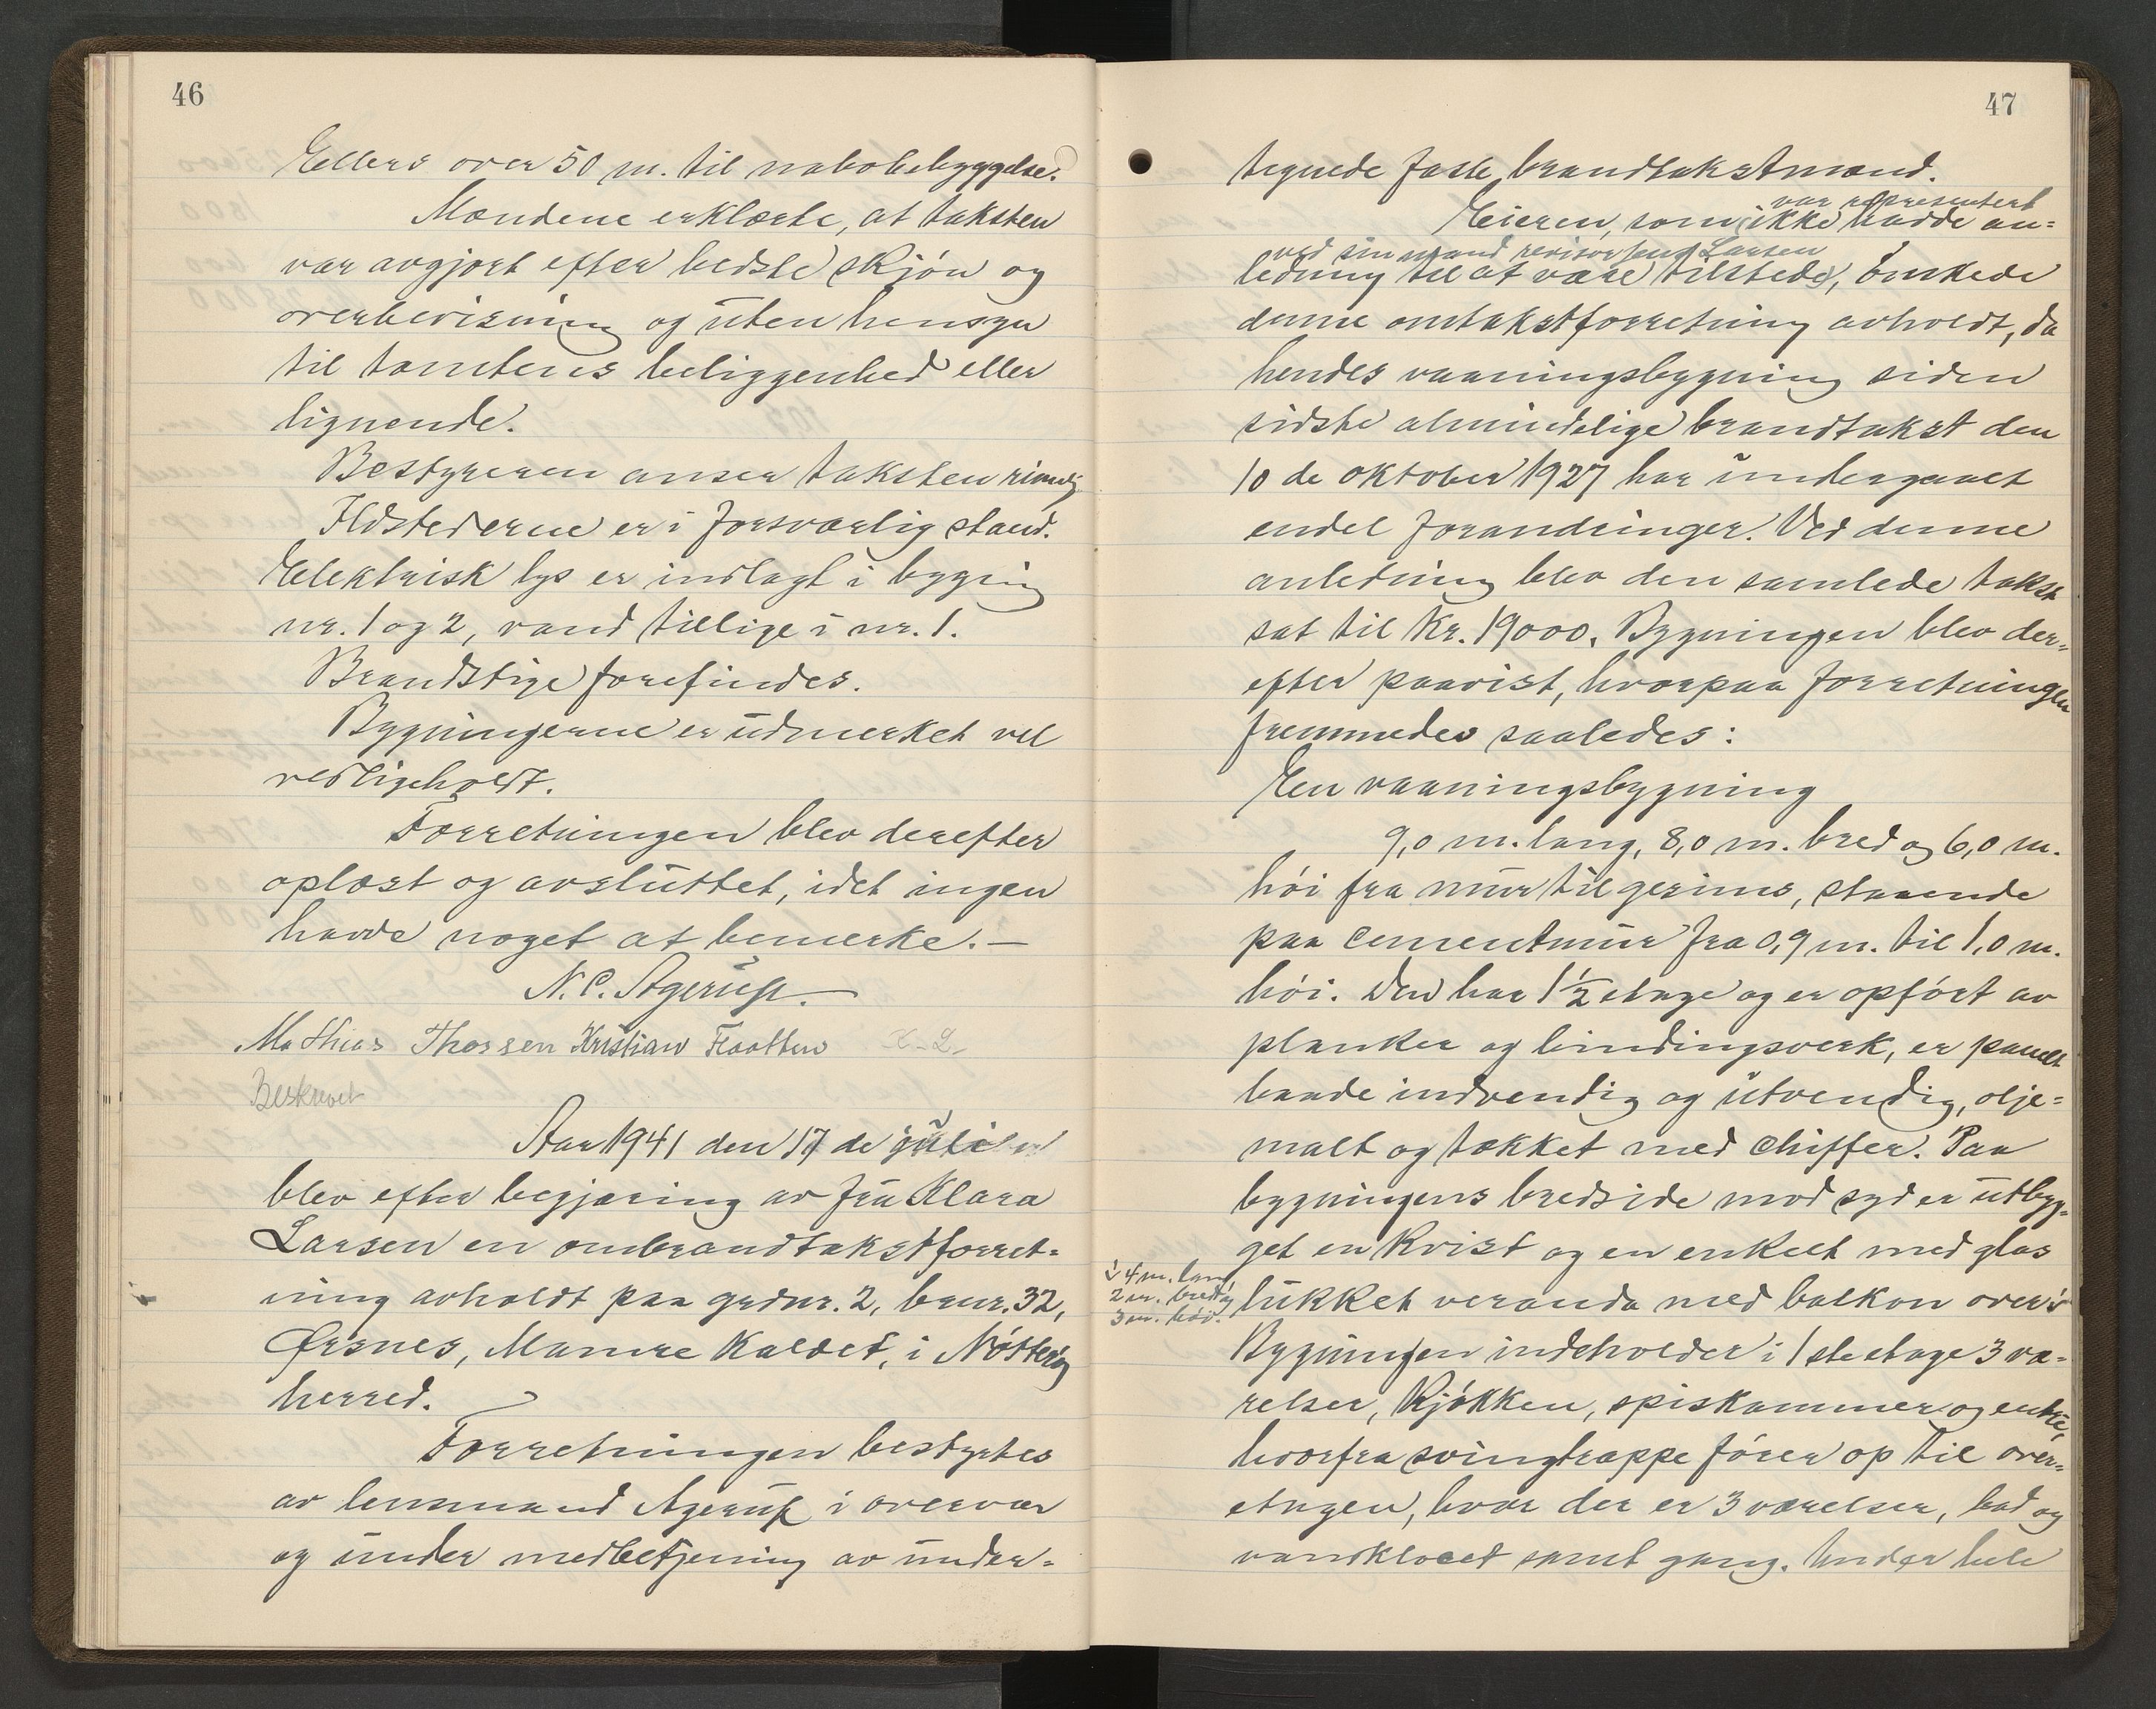 46
Ellers over 50 m. til nabobebyggelse.
Mændene erklærte, at taksten
var avgjort efter bedste skjön og
overbevisning og uten hensyn
til tomtenes beliggenhed eller
lignende.
Bestyreren anser taksten rimelig
Ildstederne er i forsvarlig stand.
Elektrisk lys er indlagt i bygning
nr. 1 og 2, vand tillige i nr. 1.
Brandstige forefindes.
Bygningerne er udmerket vel
vedligeholdt.
Forretningen blev derefter
oplæst og avsluttet, idet ingen
havde noget at bemerke. —
N. C. Agerup.
Mathias Thorsen Kristian Flaatten
Beskrevet
Aar 1941 den 17 de juli
blev efter begjæring av fru Klara
Larsen en ombrandtakstforret-
ning avholdt paa grdnr. 2, brnr. 32,
Ørsnes, Mamre kaldet, i Nötterøy
herred.
Forretningen bestyrtes
av lensmand Agerup i overvær
og under medbetjening av under-
47
tegnede faste brandtakstmænd.
var representert
Eieren, som ikke hadde an-
ved sin mand revisor Larsen
ledning til at være tilstede, önskede
denne omtakstforretning avholdt, da
hendes vaaningsbygning siden
sidste almindelige brandtakst den
10 de oktober 1927 har undergaaet
endel forandringer. Ved denne
anledning blev den samlede takst
sat til kr. 19000. Bygningen blev der-
efter paavist, hvorpaa forretningen
fremmedes saaledes:
En vaaningsbygning
9,0 m. lang, 8,0 m. bred og 6,0 m.
höi fra mur til gesims, staaende
paa cementmur fra 0,9 m. til 1,0 m.
höi. Den har 1 1/2 etage og er opfört av
planker og bindingsverk, er panelt
baade indvendig og utvendig, olje-
malt og tækket med chiffer. Paa
bygningens bredside mod syd er utbyg-
get en kvist og en enkelt med glas
lukket veranda med balkon over
4 m. lang
2 m. bred og
3 m. höi.
Bygningen indeholder i 1 ste etage 3 væ-
relser, kjökken, spiskammer og entre,
hvorfra svingtrappe förer op til over-
etagen, hvor der er 3 værelser, bad og
vandkloset samt gang. Under hele